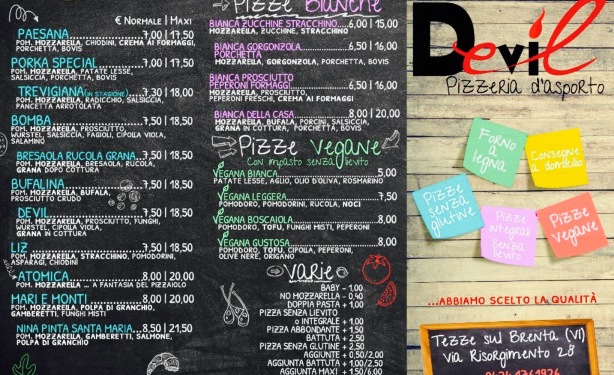 € Normale | Maxi
PAESANA 7,00 | 17,50
POM. MOZZARELLA, CHIODINI, CREMA AI FORMAGGI,
PORCHETTA, BOVIS
PORKA SPECIAL 7,00 | 17,50
POM. MOZZARELLA, PATATE LESSE,
SALSICCIA, PORCHETTA, BOVIS
TREVIGIANA (IN STAGIONE) 7,50 | 18,50
POM. MOZZARELLA, RADICCHIO, SALSICCIA,
PANCETTA ARROTOLATA
BOMBA 7,50 | 18,50
POM. MOZZARELLA, PROSCIUTTO,
WURSTEL, SALSICCIA, FAGIOLI, CIPOLA VIOLA,
SALAMINO
BRESAOLA RUCOLA GRANA 7,50 | 18,50
POM. MOZZARELLA, BRESAOLA, RUCOLA,
GRANA DOPO COTTURA
BUFALINA 7,50 | 18,50
POM. MOZZARELLA, BUFALA,
PROSCIUTTO CRUDO
DEVIL 7,50 | 18,50
POM. MOZZARELLA, PROSCIUTTO, FUNGHI,
WURSTEL, CIPOLA VIOLA,
GRANA IN COTTURA
LIZ 7,50 | 18,50
POM. MOZZARELLA, STRACCHINO, POMODORINI,
ASPARAGI, CHIODINI
ATOMICA 8,00 | 20,00
POM. MOZZARELLA ... A FANTASIA DEL PIZZAIOLO
MARI E MONTI 8,00 | 20,00
POM. MOZZARELLA, POLPA DI GRANCHIO,
GAMBERETTI, FUNGHI MISTI
NINA PINTA SANTA MARIA 8,50 | 21,50
POM. MOZZARELLA, GAMBERETTI, SALMONE,
POLPA DI GRANCHIO
Pizze Bianche
BIANCA ZUCCHINE STRACCHINO 6,00 | 15,00
MOZZARELLA, ZUCCHINE, STRACCHINO
BIANCA GORGONZOLA 6,50 | 16,00
PORCHETTA
MOZZARELLA, GORGONZOLA, PORCHETTA
BIANCA PROSCIUTTO
PEPERONI FORMAGGI 6,50 | 16,00
MOZZARELLA, PROSCIUTTO,
PEPERONI FRESCHI, CREMA AI FORMAGGI
BIANCA DELLA CASA 8,00 | 20,00
MOZZARELLA, BUFALA, PORCINI, SALSICCIA,
GRANA IN COTTURA, PORCHETTA, BOVIS
Pizze Vegane
Con impasto senza lievito
VEGANA BIANCA 5,00
PATATE LESSE, AGLIO, OLIO D'OLIVA, ROSMARINO
VEGANA LEGGERA 7,50
POMODORO, POMODORINI, RUCOLA, NOCI
VEGANA BOSCAIOLA 8,00
POMODORO, TOFU, FUNGHI MISTI, PEPERONI
VEGANA GUSTOSA 8,00
POMODORO, TOFU, CIPOLA, PEPERONI,
OLIVE NERE, ORIGANO
VARIE
BABY - 1,00
NO MOZZARELLA - 0,90
DOPPIA PASTA + 1,00
PIZZA SENZA LIEVITO
o INTEGRALE + 1,00
PIZZA ABBONDANTE + 1,50
BATTUTA + 2,00
PIZZA SENZA GLUTINE + 2,50
AGGIUNTE + 0,50/2,00
AGGIUNTA BATTUTA + 1,00/2,50
AGGIUNTA MAXI
Devil
Pizzeria d'asporto
Forno a legna
Consegne a domicilio
Pizze senza glutine
Pizze integrali e senza lievito
Pizze vegane
...ABBIAMO SCELTO LA QUALITÀ
Tezze sul Brenta (VI)
via Risorgimento 28